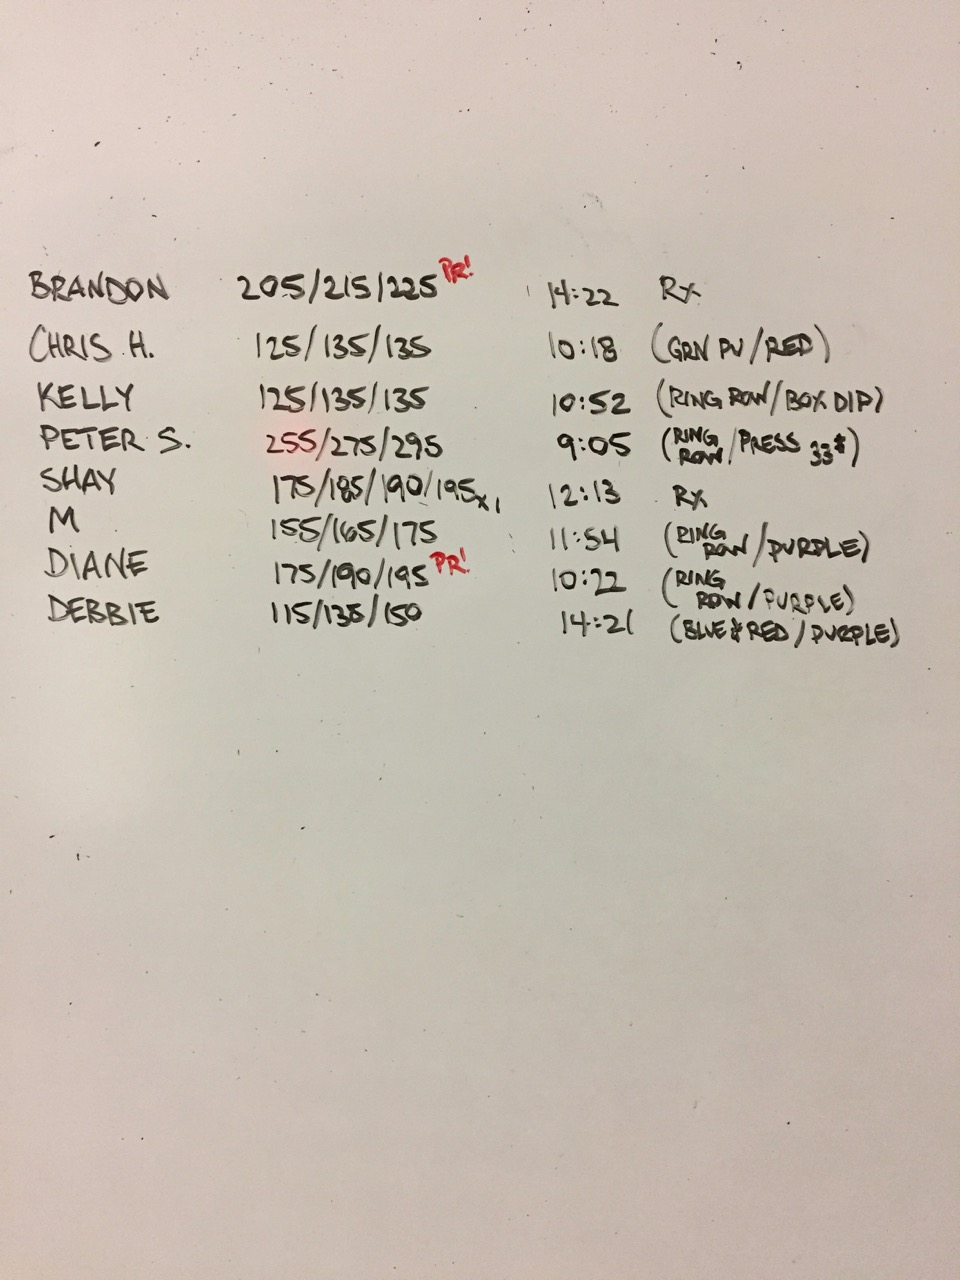 BRANDON 205/215/225 PR! 14:22 Rx
CHRIS H. 125/135/135 10:18 (GRN PU/RED)
KELLY 125/135/135 10:52 (RING ROW/BOX DIP)
PETER S. 255/275/295 9:05 (RING ROW/PRESS 33#)
SHAY 175/185/190/195x1 12:13 Rx
M 155/165/175 11:54 (RING ROW/PURPLE)
DIANE 175/190/195 PR! 10:22 (RING ROW/PURPLE)
DEBBIE 115/135/150 14:21 (BLUE & RED/PURPLE)